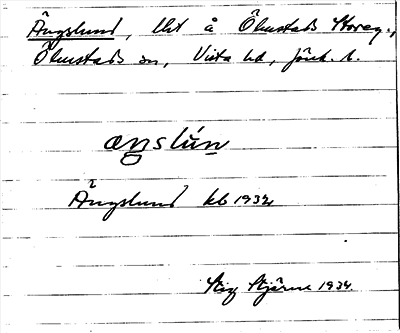 Ängslund, lht å Ölmstads Storeg.,
Ölmstads sn, Vista hd, Jönk. l.
æŋslún
Ängslund kb 1932
Stig Stjärne 1934.